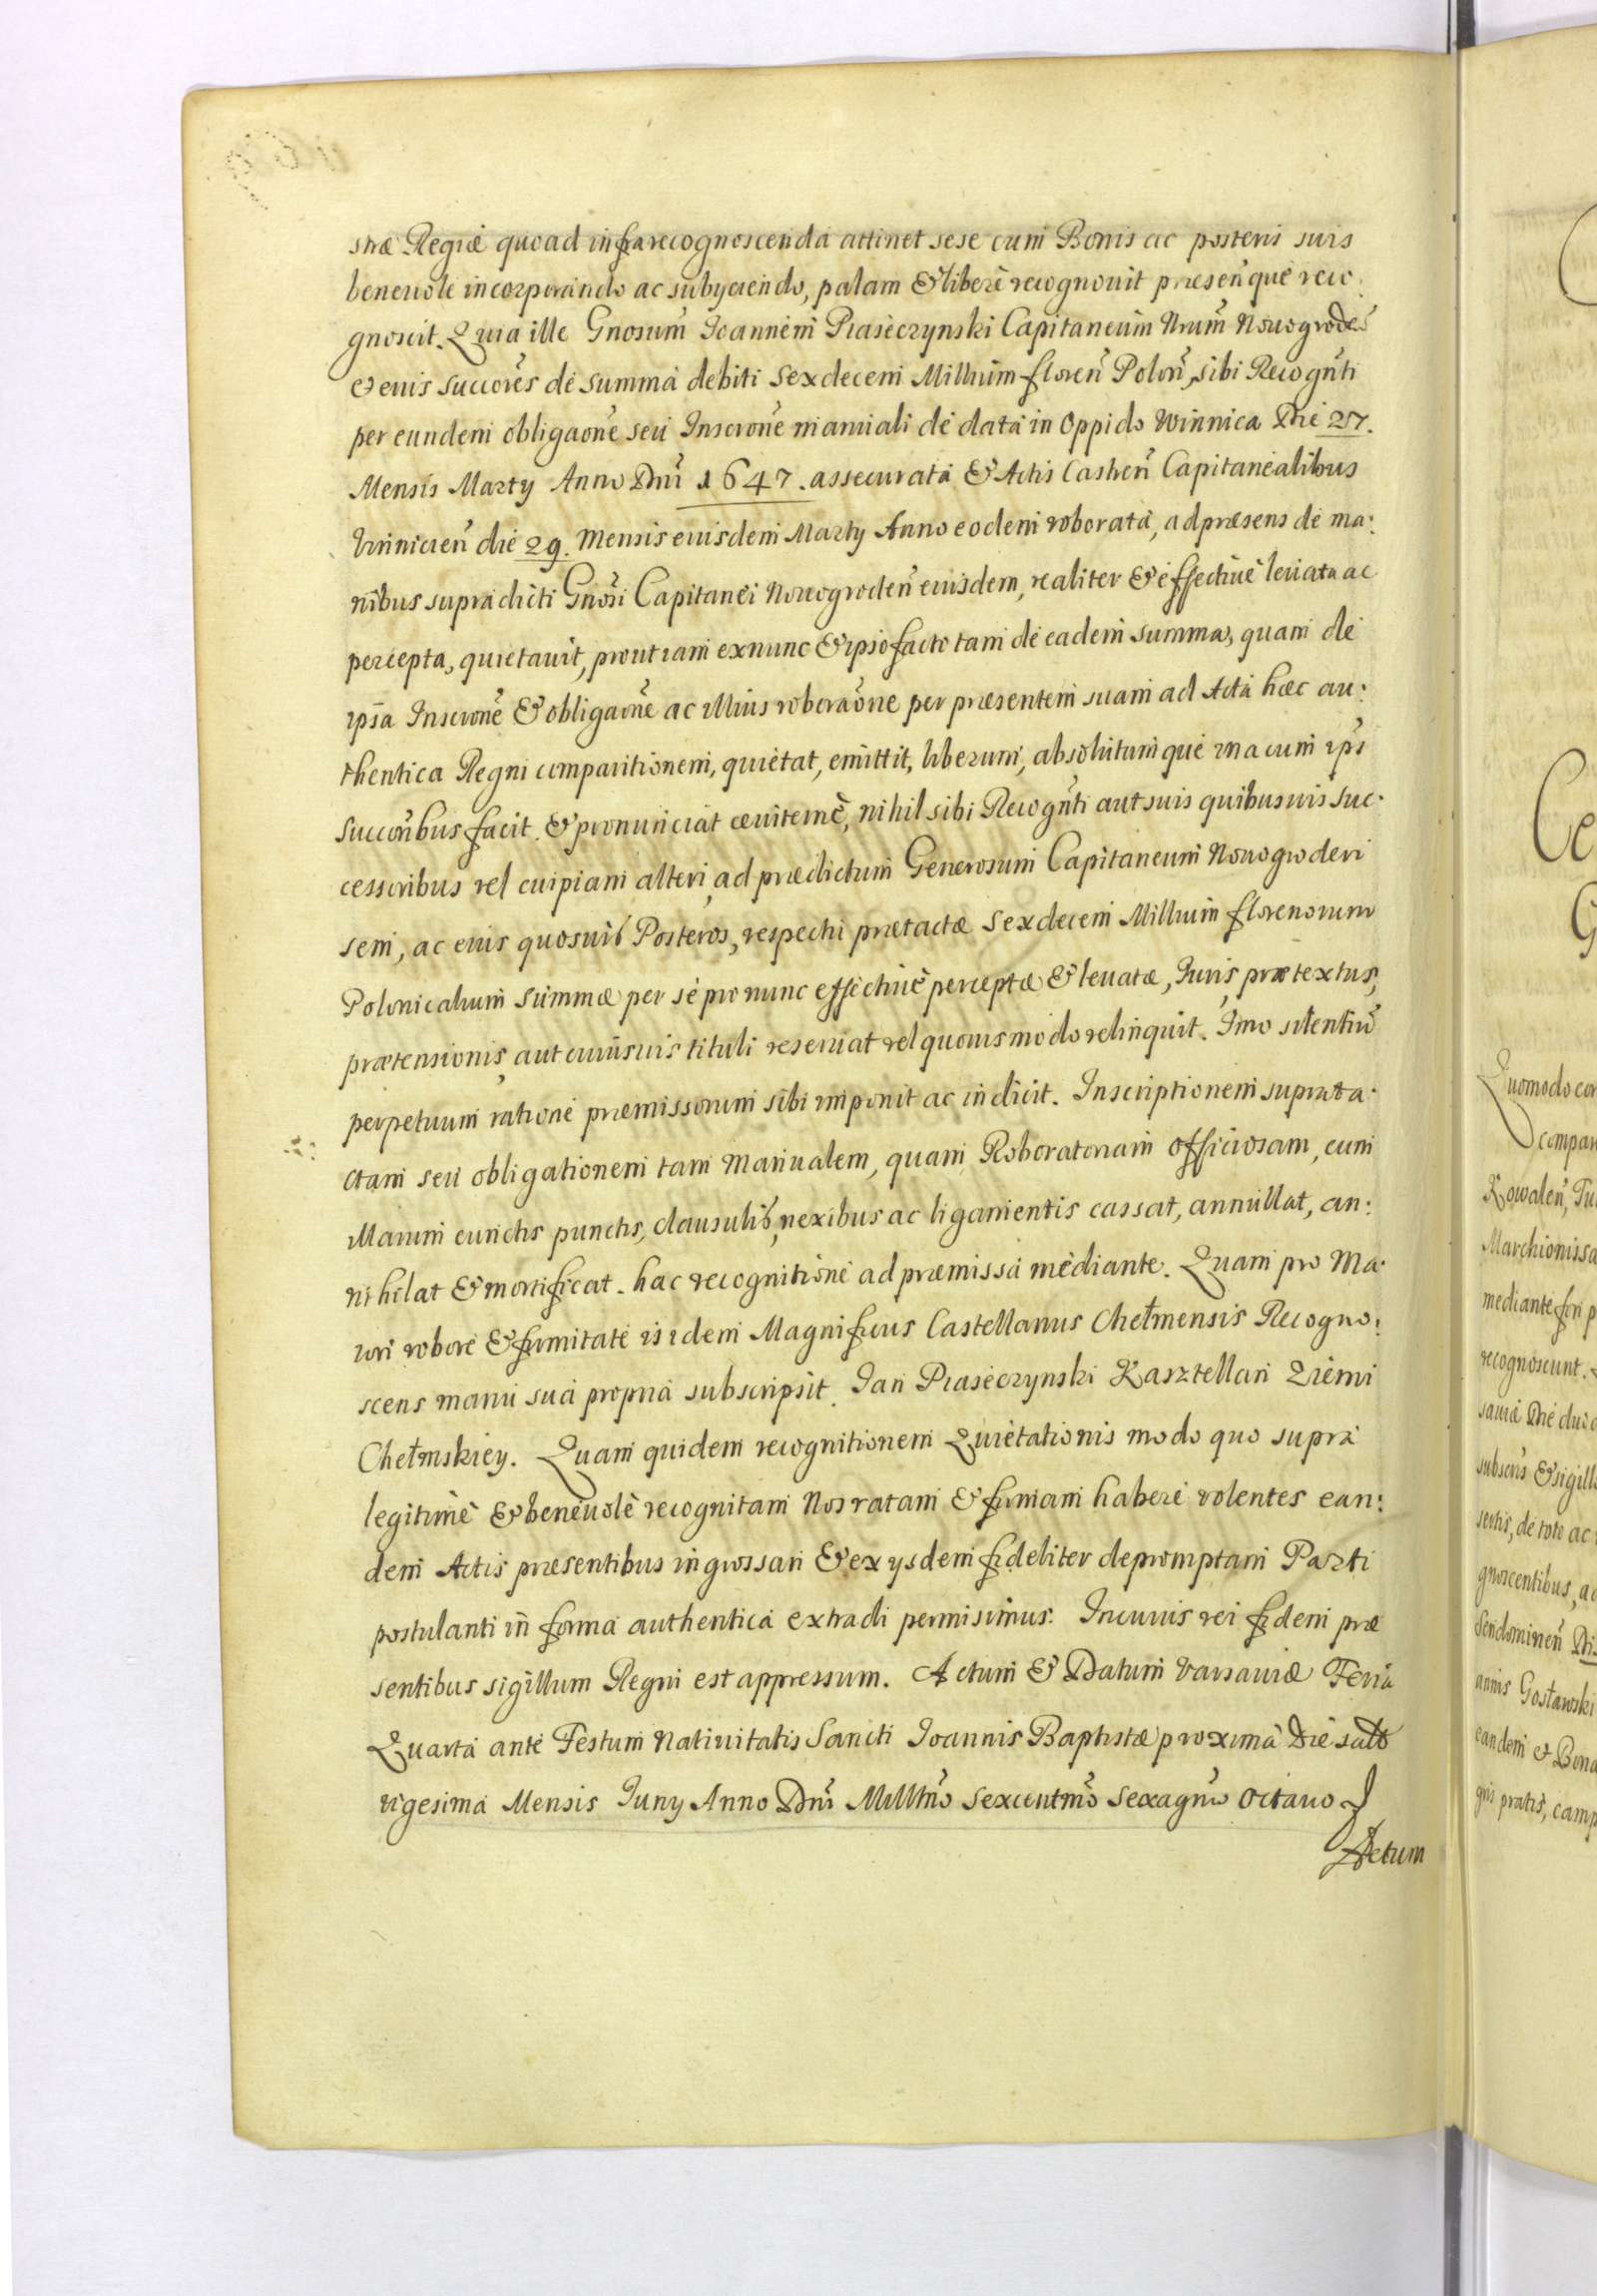 stræ Regiæ quoad infrarecognoscenda attinet sese cum Bonis ac posteris suis
beneuole incorporando ac subyciendo, palam & liberè recognouit præsenq́ue reco:
gnoscit. Quia ille Gnosum̃ Joannem Piaseczynski Capitaneum Nrum̃ Nouogroden̄
et eius succores̃ de summa debiti sexdecem Millium floren̄ Polon̄, sibi Recogn̄ti
per eundem obligaonē seu Inscronē manuali de data in Oppido Winnica Die 27.
Mensis Marty Anno Dn̄i 1647. assecurata & Actis Castren̄ Capitanealibus
Vinnicien̄ die 29. Mensis eiusdem Marty Anno eodem roborata, ad præsens de ma:
nibus supradicti Gnosi̇̃ Capitanei Nouogroden̄ eiusdem, realiter & effectiuè leuata ac
percepta, quietauit, prout iam exnunc & ipso facto tam de eadem summa, quam de
ips̄a Inscronē & obligaonē ac illius roboraōne per præsentem suam ad Acta hæc au:
thentica Regni comparitionem, quietat, emittit, liberum, absolutumque una cum ips̄i
succorib̃us facit. & pronunciat æuiternè, nihil sibi Recogn̄ti aut suis quibusuis suc:
cessoribus vel cuipiam alteri, ad prædictum Generosum Capitaneum Nouogroden
sem, ac eius quosuis Posteros, respectu prætactæ sexdecem Millium florenorum
Polonicalium summæ per se pro nunc effectiuè perceptæ & leuatæ, Juris, prætextus,
prætensionis, aut cuiusuis tituli reseruat vel quouismodo relinquit. Imo silentiu̅
perpetuum ratione præmissorum sibi imponit ac indicit. Inscriptionem suprata:
ctam seu obligationem tam Manualem, quam Roboratoriam officiosam, cum
illarum cunctis punctis, clausulis, nexibus ac ligamentis cassat, annullat, an:
nihilat & mortificat. hac recognitione ad præmissa mediante. Quam pro Ma:
iori robore & firmitate is idem Magnificus Castellanus Chełmensis Recogno:
scens manu sua propria subscripsit. Jan Piaseczynski Kasztellan Ziemi
Chełmskiey. Quam quidem recognitionem Quietationis modo quo supra
legitimè & beneuolè recognitam Nos ratam & firmam habere volentes ean:
dem Actis præsentibus ingrossari & ex ysdem fideliter depromptam Parti
postulanti in̄ forma authentica extradi permisimus. In cuius rei fidem præ
sentibus sigillum Regni est appressum. Actum & Datum Varsauiæ Feria
Quarta ante Festum Natiuitatis Sancti Joannis Baptistæ proxima Die
vigesima Mensis Juny Anno Dn̄i Millm̄o sexcentm̄o sexagm̄o Octauo
Actum
Ce
G
Quomodo
Kowalen̄,
Marchionissa
mediante
recognoscunt.
& sigill
gnoscentibus,
Sendomirien̄
Gosławski
eandem et
pratis, camp